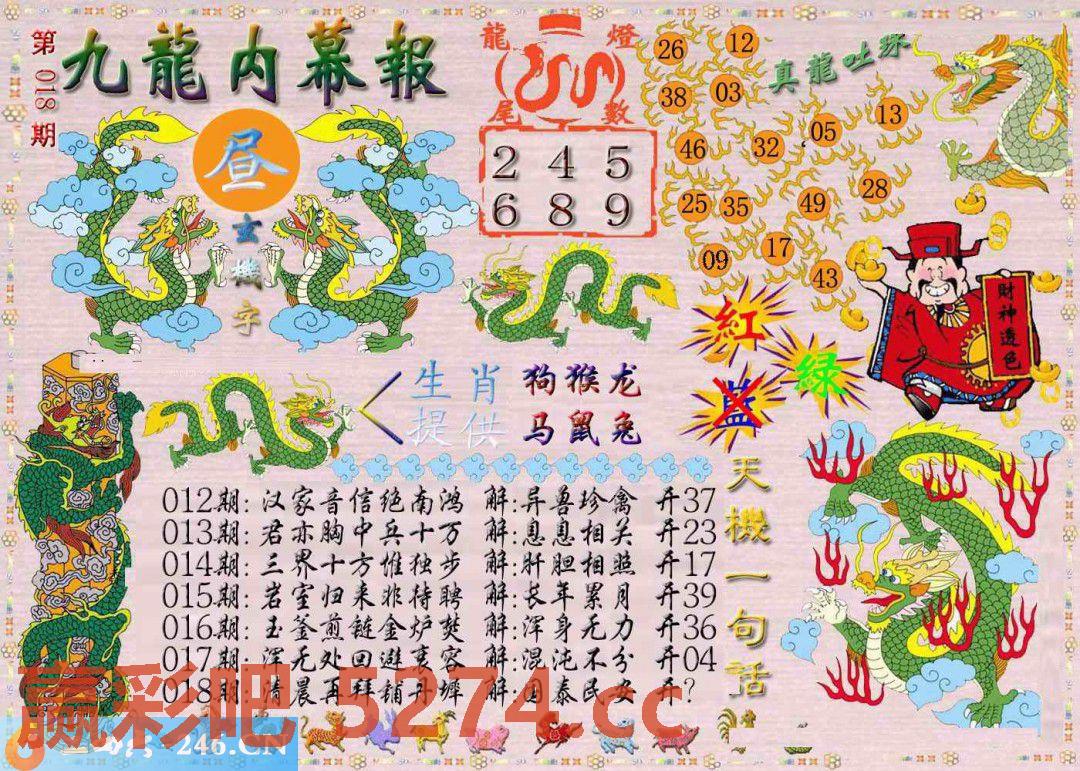 第018期
九龍内幕報
昼
玄機字
龍尾
燈數
2 4 5
6 8 9
真龍吐珠
26 12
38 03
46 32 05 13
25 35 49 28
09 17 43
財神透色
紅
藍
绿
生肖 狗猴龙
提供 马鼠兔
天機一句話
012期: 汉家音信绝南鸿 解:异兽珍禽 开37
013期: 君亦胸中兵十万 解:息息相关 开23
014期: 三界十方惟独步 解:肝胆相照 开17
015期: 岩室归来非待聘 解:长年累月 开39
016期: 玉釜煎链金炉焚 解:浑身无力 开36
017期: 浑无处回避衰容 解:混沌不分 开04
018期: 清晨再拜铺丹墀 解:国泰民安 开?
赢彩吧 5274.cc
246.CN